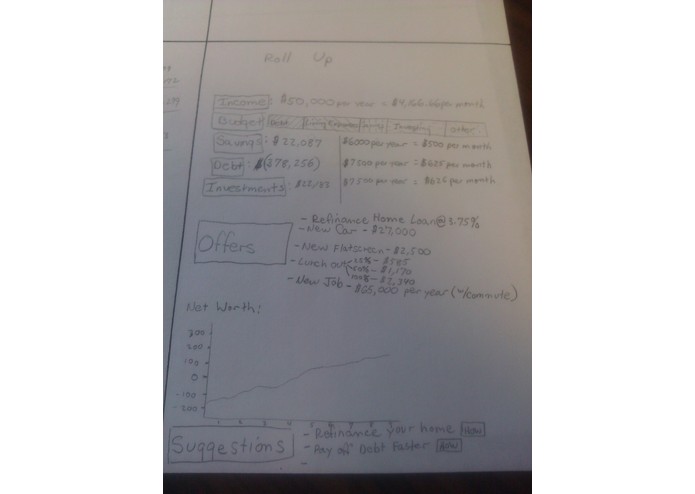 Roll Up
Income: $50,000 per year = $4,166.66 per month
Budget Debt Living Expenses Savings Investing Other
Savings: $22,087 $6000 per year = $500 per month
Debt: $(278,256) $7500 per year = $625 per month
Investments: $7500 per year = $625 per month
Offers
- Refinance Home Loan @ 3.75%
- New Car - $27,000
- New Flatscreen - $2,500
- Lunch out 25% - $585
50% - $1,170
100% - $2,340
- New Job - $65,000 per year (w/commute)
Net Worth:
300
200
100
0
-100
-200
1 2 3 4 5 6 7 8
Suggestions
- Refinance your home HOW
- Pay off Debt Faster HOW
-